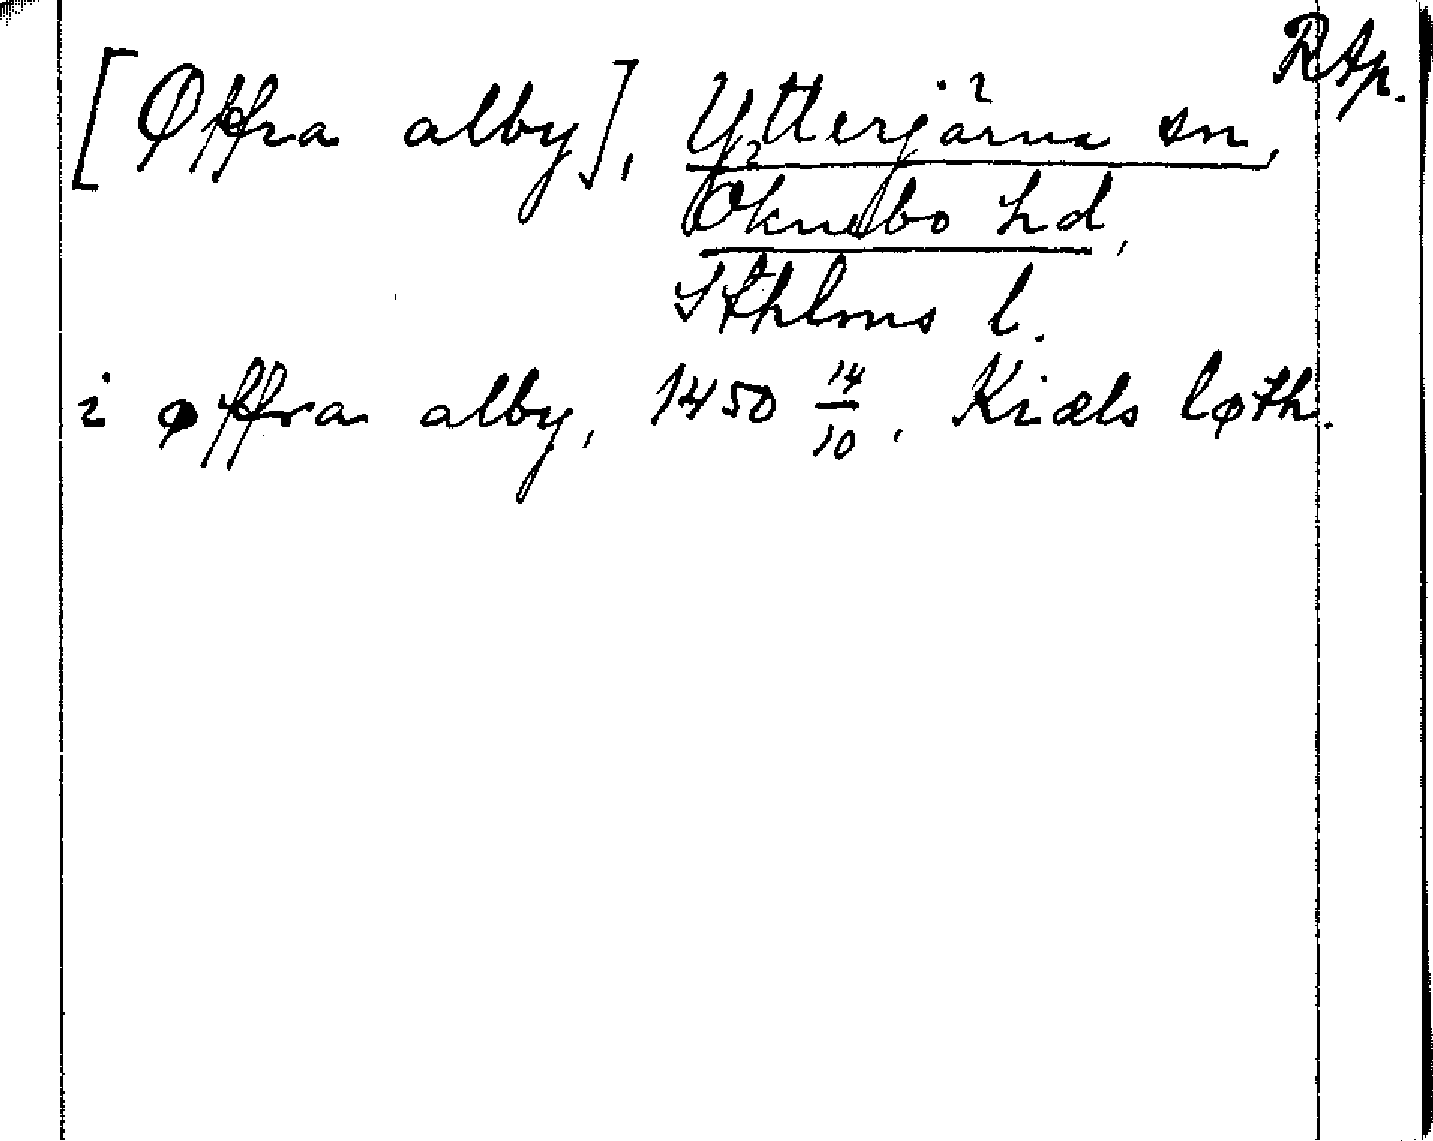 RAp.
[Øffra alby], Ytterjärna sn,
Öknebo hd,
Sthlms l.
i øffra alby, 1450 14/10, Kiæls løth.